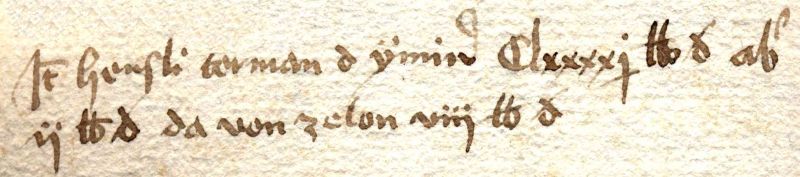 It hensli terman d ymin Clxxxxj lb d ab
ij lb d da von zelon viij lb d